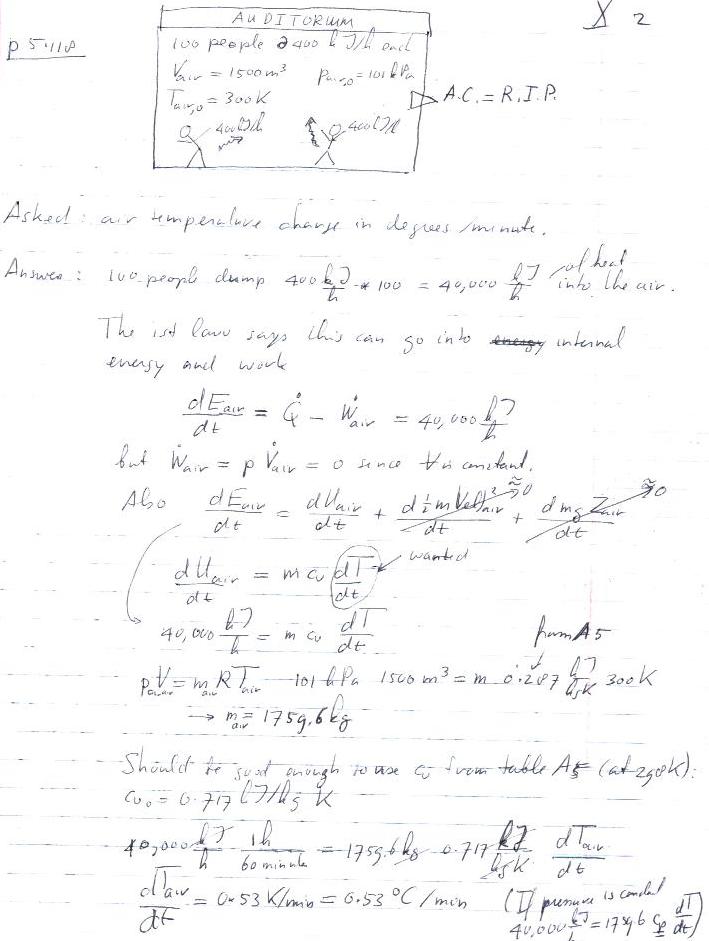 X 2
p 5.118
AUDITORIUM
100 people @ 400 kJ/h each
Vair = 1500 m³ Pair,0 = 101 kPa
Tair,0 = 300K
A.C. = R.I.P.
400 kJ/h 400 kJ/h
Asked: air temperature change in degrees/minute.
Answer: 100 people dump 400 kJ/h * 100 = 40,000 kJ/h of heat into the air.
The 1st law says this can go into energy internal
energy and work
dEair/dt = Q̇ - Ẇair = 40,000 kJ/h
but Ẇair = p V̇air = 0 since V is constant.
Also dEair/dt = dUair/dt + d½mVel²air/dt ≈0 + dmgZair/dt ≈0
dUair/dt = m cv dT/dt wanted
40,000 kJ/h = m cv dT/dt
from A5
pair V = mair R Tair 101 kPa 1500 m³ = m 0.287 kJ/kgK 300K
→ mair = 1759.6 kg
Should be good enough to use cv from table A5 (at 298K):
cv0 = 0.717 kJ/kg K
40,000 kJ/h 1h/60 minute = 1759.6 kg 0.717 kJ/kgK dTair/dt
dTair/dt = 0.53 K/min = 0.53 °C/min (If pressure is constant
40,000 kJ/h = 1759.6 cp dT/dt)